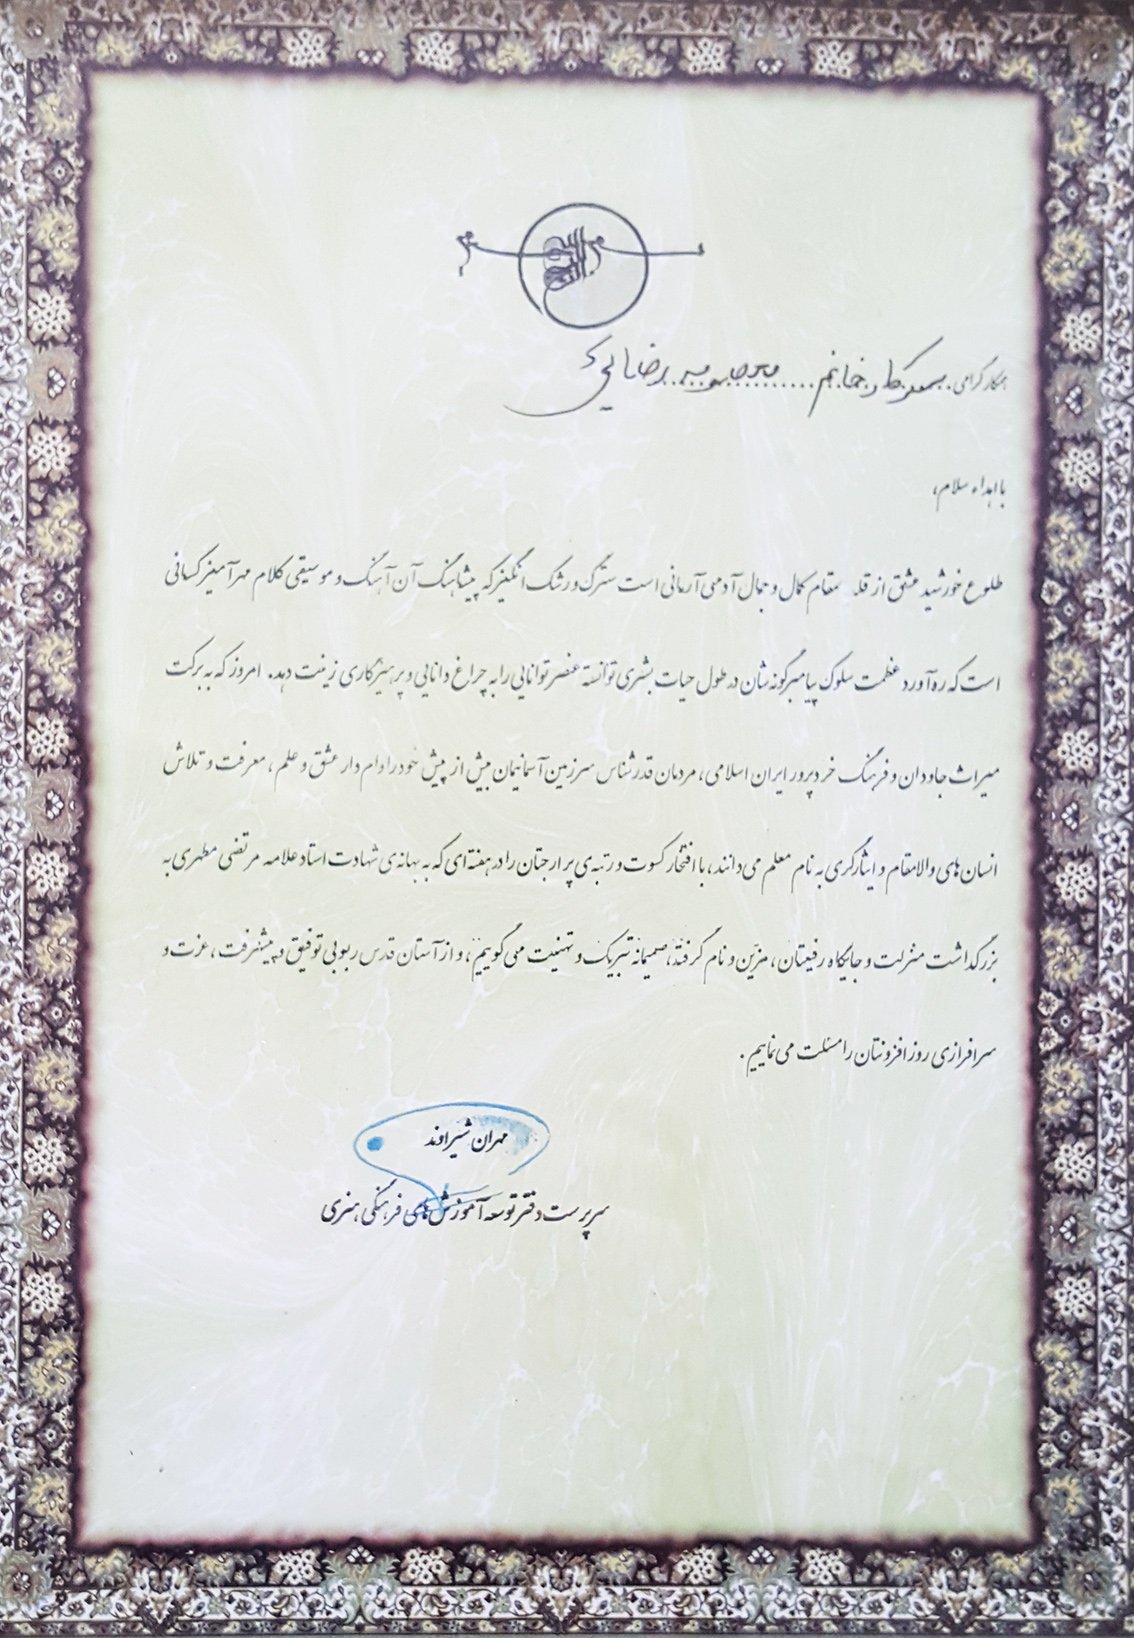 همکار گرامی سرکار خانم معصومه رضایی
با اهداء سلام،
طلوع خورشید عشق از قله مقام کمال و جمال آدمی آرمانی است سترگ و رشک انگیز که پیشاهنگ آن آهنگ و موسیقی کلام مهرآمیز کسانی
است که ره آورد عظمت سلوک پیامبرگونه شان در طول حیات بشری توانسته عنصر توانایی را به چراغ دانایی و پرهیزکاری زینت دهد. امروز که به برکت
میراث جاودان و فرهنگ خردپرور ایران اسلامی، مردمان قدرشناس سرزمین آسمانیمان بیش از پیش خود را وام دار عشق و علم، معرفت و تلاش
انسان های والامقام و ایثارگری به نام معلم می دانند، با افتخار کسوت و رتبه ی پر ارجتان را در هفته ای که به بهانه ی شهادت استاد علامه مرتضی مطهری به
بزرگداشت منزلت و جایگاه رفیعتان، مزین و نام گرفته، صمیمانه تبریک و تهنیت می گوییم، و از آستان قدس ربوبی توفیق و پیشرفت، عزت و
سرافرازی روزافزونتان را مسئلت می نماییم.
مهران شیراوند
سرپرست دفتر توسعه آموزش های فرهنگی هنری